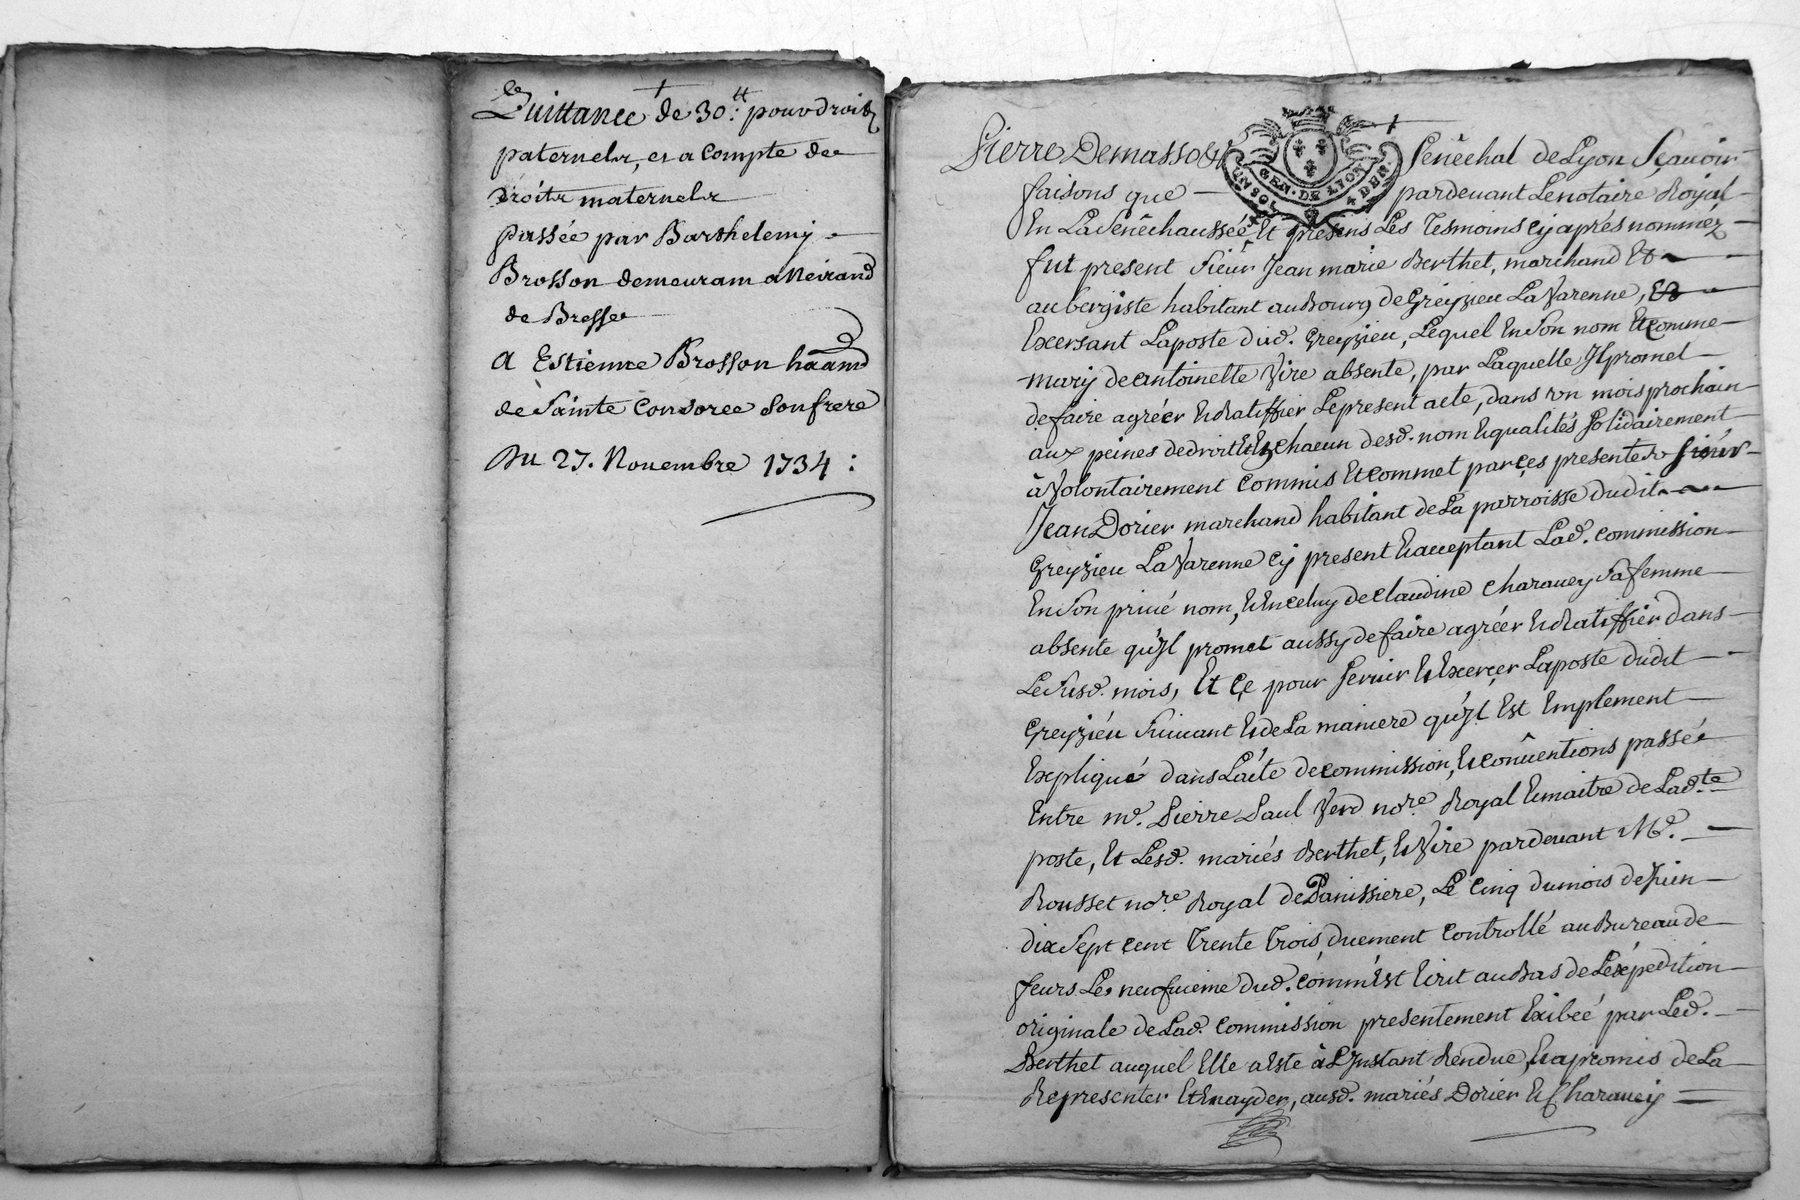 Quittance de 30:tt pour droits
paternels, et a compte de
droits maternels
passée par Barthelemy
Brosson demeurant a Meirand
de Bresse
a Estienne Brosson habitant
de Sainte Consorce son frere
Du 27. Novembre 1734 :
Pierre Demasso Senêchal de Lyon sçavoir
GEN. DE LION
UN SOL 4 DEN.
faisons que pardevant Le notaire Royal
En La Senêchaussée, Et presens Les Tesmoins cy aprés nomméz
fut present Sieur Jean marie Berthet, marchand Et
aubergiste habitant au Bourg de Greyzieu La Varenne,
Exersant La poste dud. Greyzieu, Lequel En son nom Et comme
mary de antoinette Vire absente, par Laquelle Il promet
de faire agréer Et Ratiffier Le present acte, dans un mois prochain
aux peines de droit Et En chacun desd. nom Et qualités solidairement
à Volontairement commis Et commet par ces presentes Sieur
Jean Dorier marchand habitant de La parroisse dudit
Greyzieu La Varenne cy present Et acceptant Lad. commission
En son privé nom, Et En celuy de Claudine Charavey sa femme
absente qu'Il promet aussy de faire agréer Et Ratiffier dans
Le susd. mois, Et ce pour servir Et Exercer La poste dudit
Greyziéu suivant Et de La maniere qu'Il Est Emplement
Expliqué dans L'acte de commission, Et conventions passée
Entre me. Pierre Paul Verd nore. Royal Et maitre de Ladte.
poste, Et Lesd. mariés Berthet, Et Vire pardevant Me.
Rousset nore. Royal de Panissiere, Le cinq du mois de Juin
dix sept cent Trente Trois, duement controllé au Bureau de
feurs Le neufvieme dud. comm'Est Ecrit au Bas de L'expedition
originale de Lad. commission presentement Exibée par Led.
Berthet auquel Elle a Esté à L'Instant Rendue, Et a promis de La
Representer Et En ayder, ausd. mariés Dorier Et Charavey